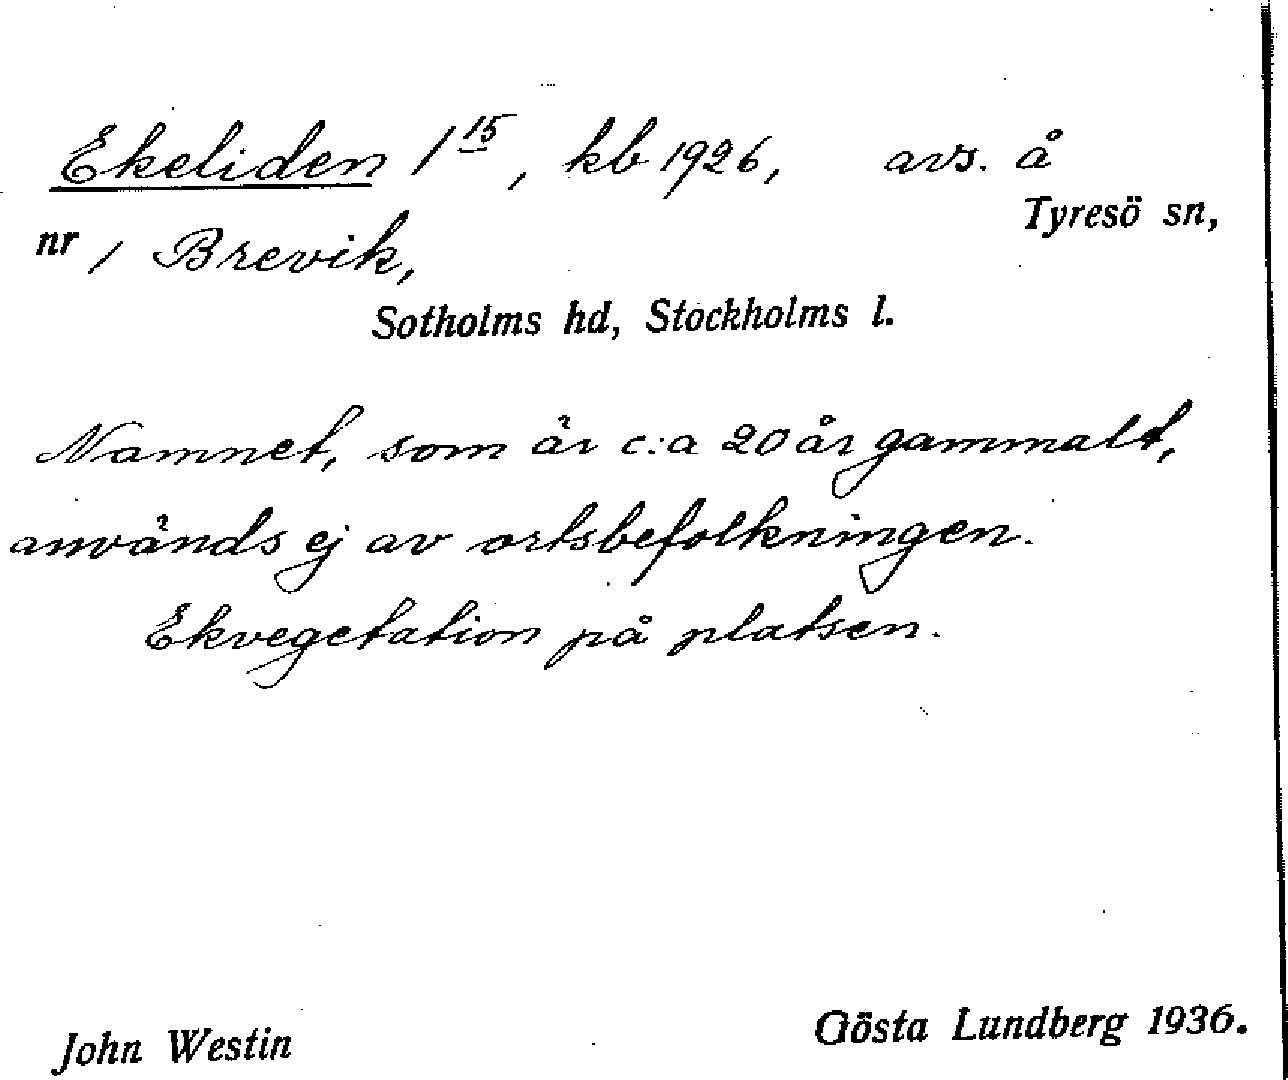 Ekeliden 1 15, kb 1926, avs. å
Tyresö sn,
nr 1 Brevik,
Sotholms hd, Stockholms l.
Namnet, som är c:a 20 år gammalt,
används ej av ortsbefolkningen.
Ekvegetation på platsen.
John Westin
Gösta Lundberg 1936.